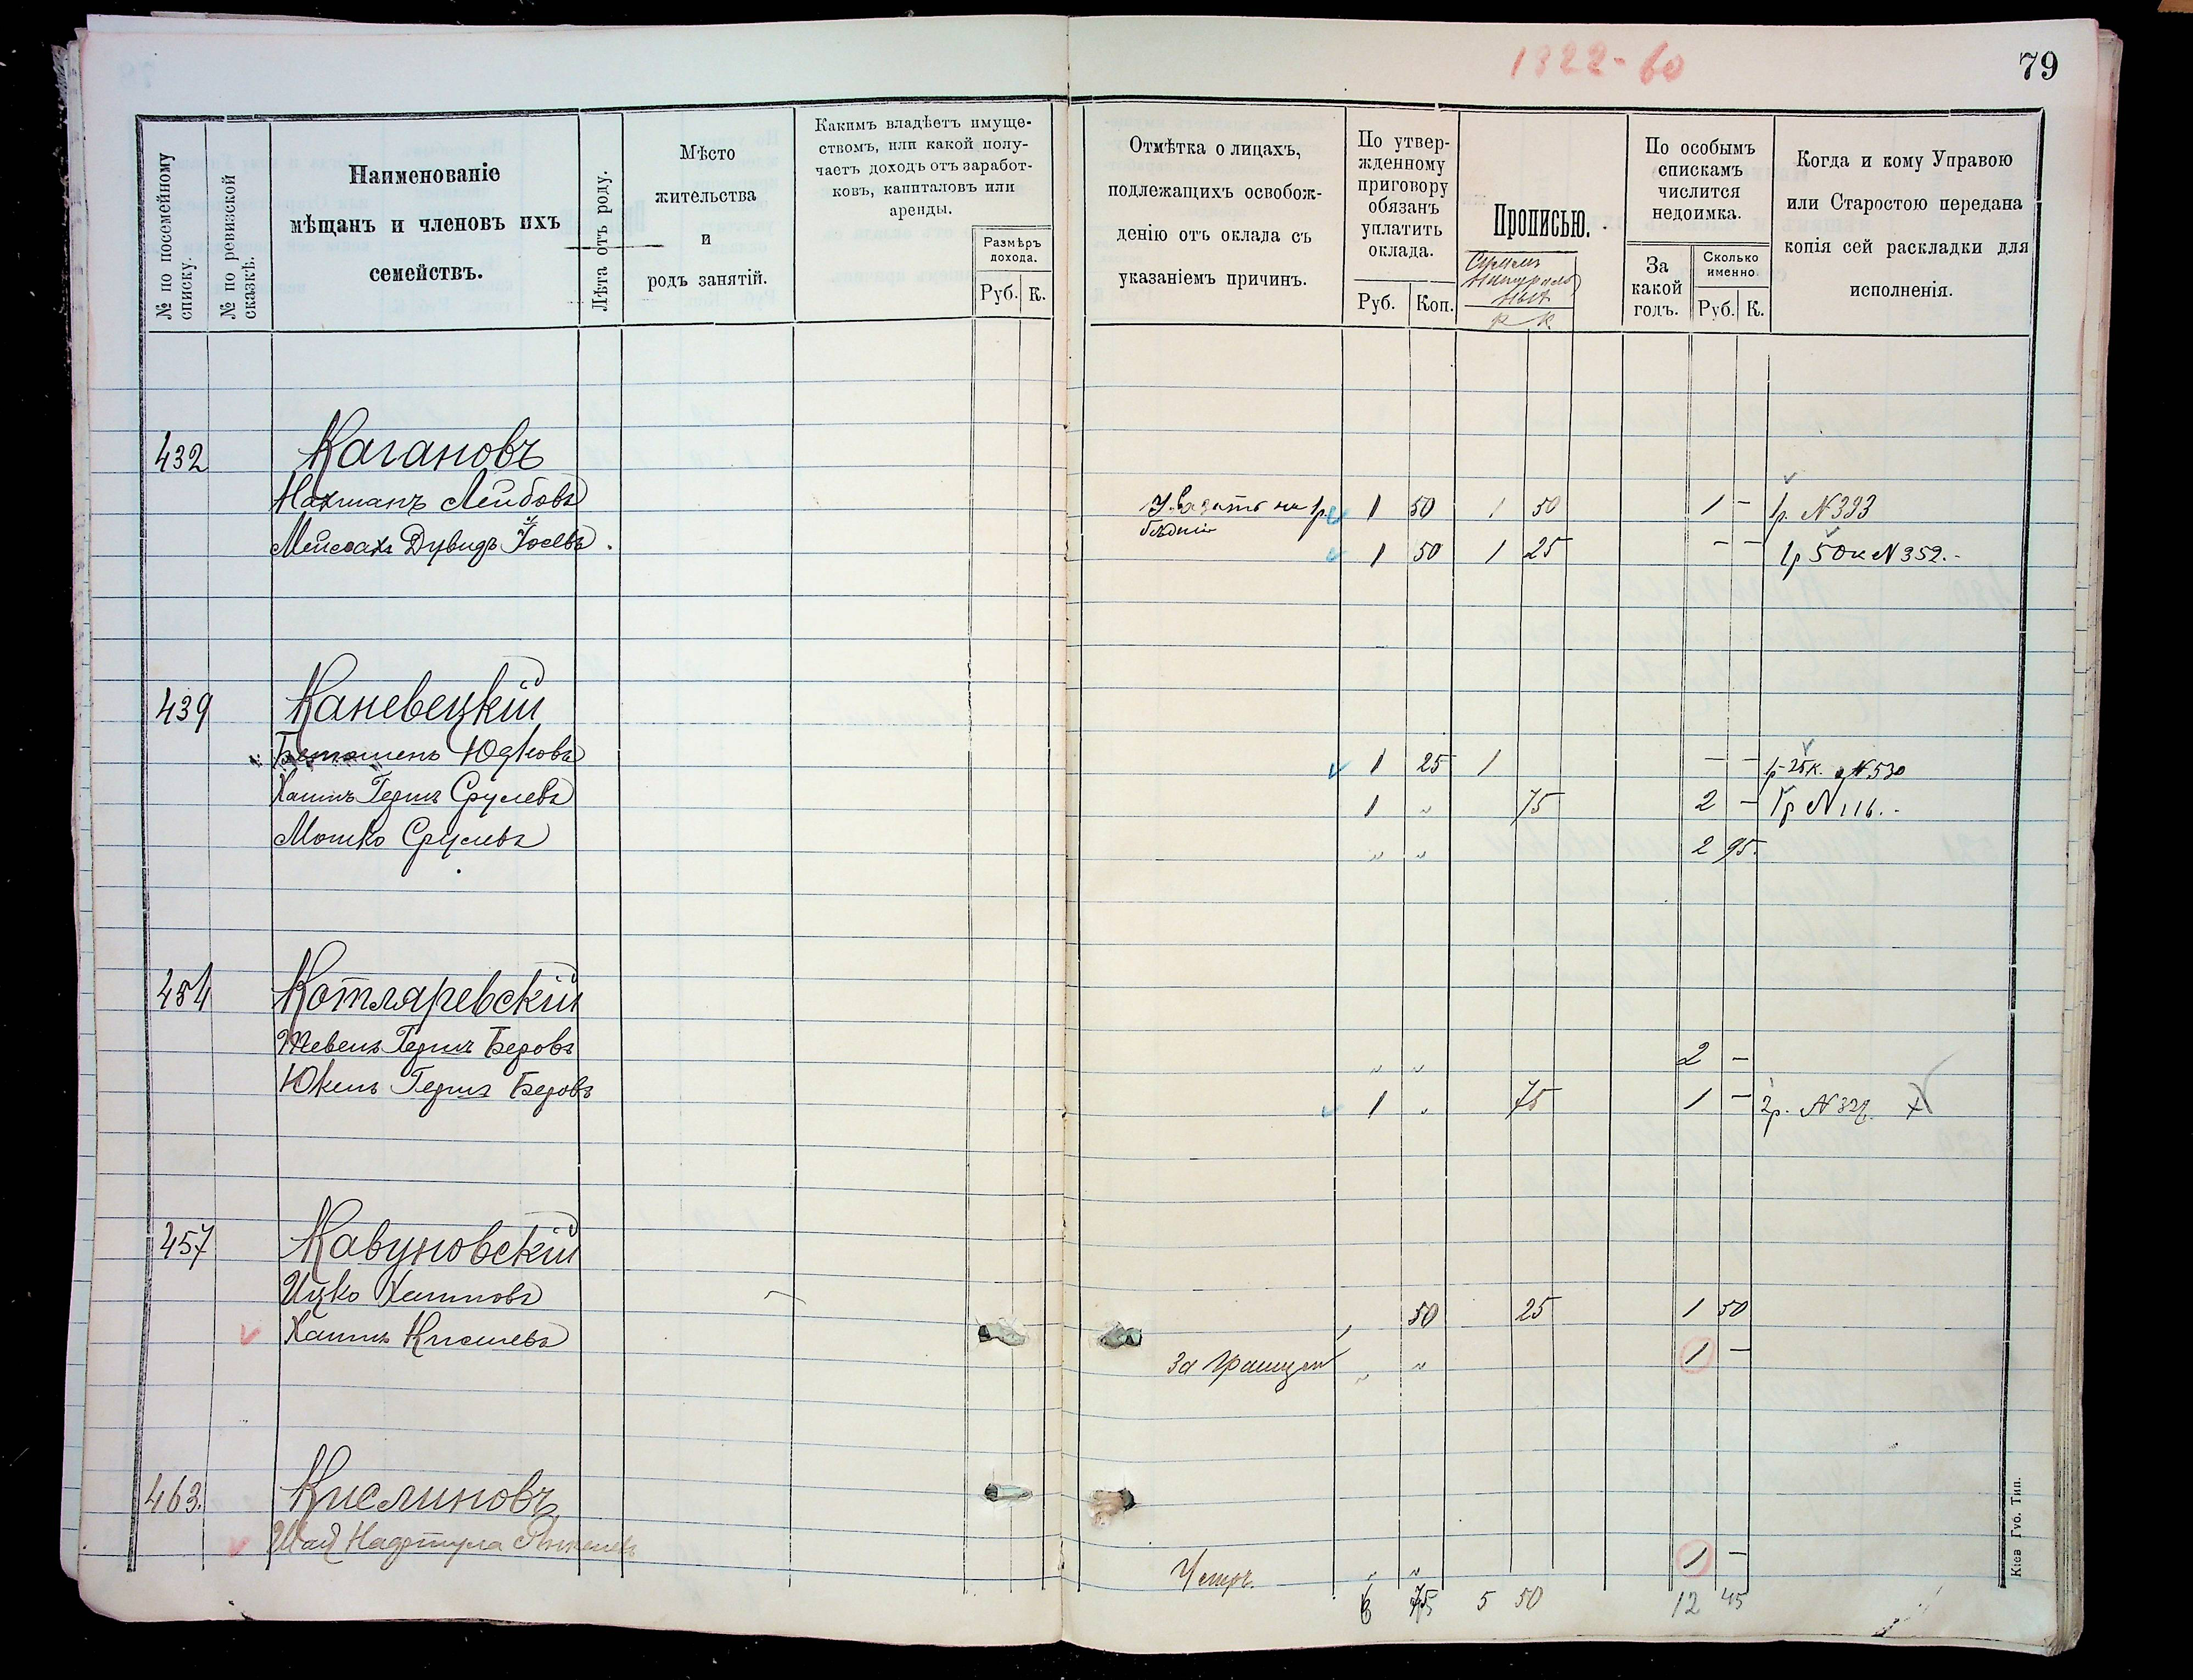 1822-60
79
№ по посемейному списку.
№ по ревизской сказкѣ.
Наименованіе
мѣщанъ и членовъ ихъ
семействъ.
Лѣта отъ роду.
Мѣсто
жительства
и
родъ занятій.
Какимъ владѣетъ имуще-
ствомъ, или какой полу-
чаетъ доходъ отъ заработ-
ковъ, капиталовъ или
аренды.
Размѣръ
дохода.
Руб. К.
Отмѣтка о лицахъ,
подлежащихъ освобож-
денію отъ оклада съ
указаніемъ причинъ.
По утвер-
жденному
приговору
обязанъ
уплатить
оклада.
Руб. Коп.
Прописью.
р к
По особымъ
спискамъ
числится
недоимка.
За
какой
годъ.
Сколько
именно
Руб. К.
Когда и кому Управою
или Старостою передана
копія сей раскладки для
исполненія.
432 Кагановъ
Нахманъ Лейбовъ 1 50 1 50 1 — 1р. N 393
Дувидъ Іосевъ 1 50 1 25 — — 1р 50к N 352.-
439 Каневецкій
Юдковъ 1 25 1 — — 1р-25к. N 530
Хаимъ Гершъ Срулевъ 1 „ 75 2 — 1р N 116.-
Мошко Срулевъ „ „ 2 95
454 Котляревскій
Гершъ Беровъ „ „ 2 —
Юкель Гершъ Беровъ 1 „ 75 1 — 2р. N
457 Кавуновскій
Ицко Хаимовъ „ 50 25 1 50
Хаимъ Кисилевъ За границей „ „ 1 —
463. Кислиновъ
Шая Нафтула Янкелевъ „ „ 1 —
6 75 5 50 12 45
Кіев Губ. Тип.